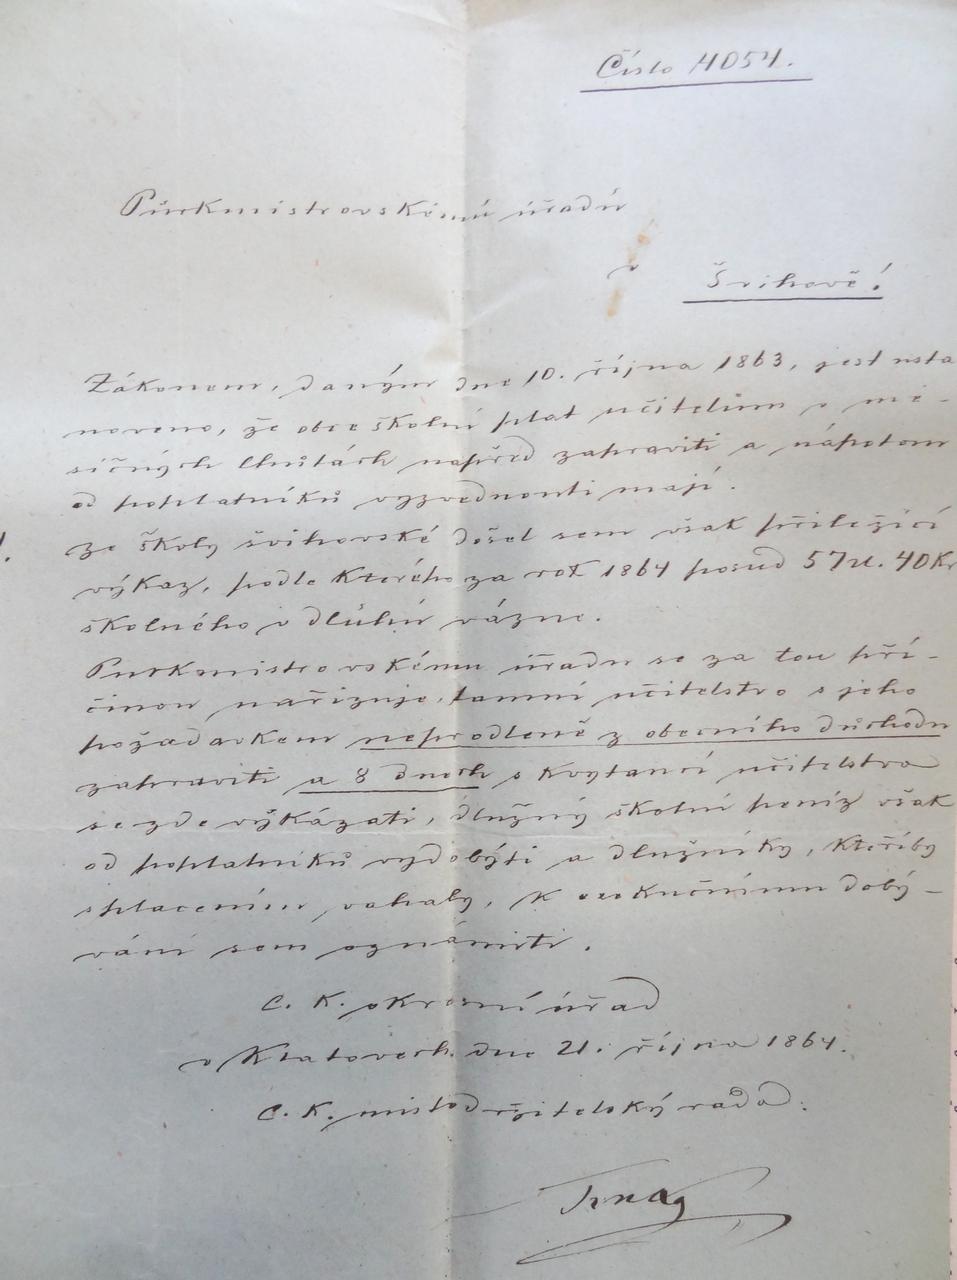 Číslo 4054.
Purkmistrovskému úřadu
v Švihově!
Zákonem, daným dne 10. října 1863, jest usta
noveno, že obce školní plat učitelům v mě-
síčných lhůtách napřed zapraviti a nápotom
od poplatníků vyzvednouti mají.
ze školy švihovské došel sem však přiležící
výkaz, podle kterého za rok 1864 posud 57 zl. 40 Kr
školného v dluhu vázne.
Purkmistrovskému úřadu se za tou pří-
činou nařizuje, tamní učitelstvo s jeho
požadavkem neprodleně z obecního důchodu
zapraviti a 8 dnech s kvytancí učitelstva
se zde výkázati, dlužný školní peníz však
od poplatníků vydobýti a dlužníky, kteříby
splacením váhaly, k exekučnímu dobý-
vání sem oznámiti.
C. K. okresní úřad
v Klatovech dne 21. října 1864.
C. K. místodržitelský rada: